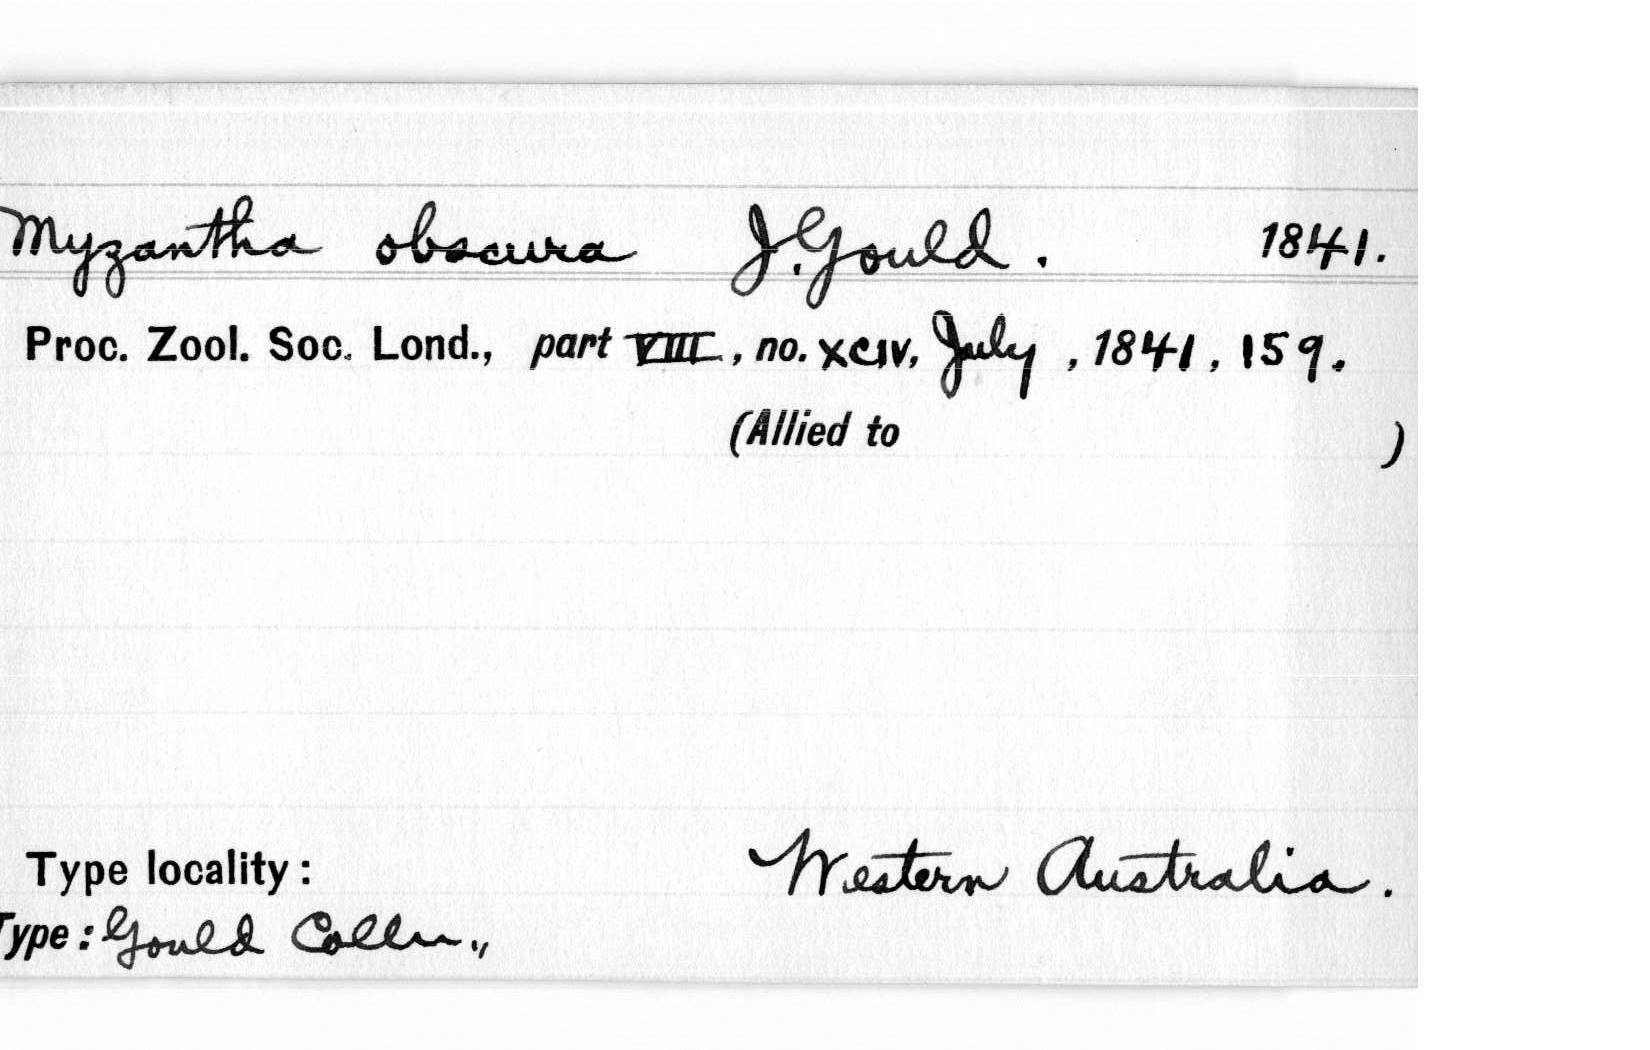 Myzantha obscura J. Gould. 1841.
Proc. Zool. Soc. Lond., part VIII, no. XCIV, July, 1841, 159.
(Allied to )
Type locality: Western Australia.
Type: Gould Colln.,